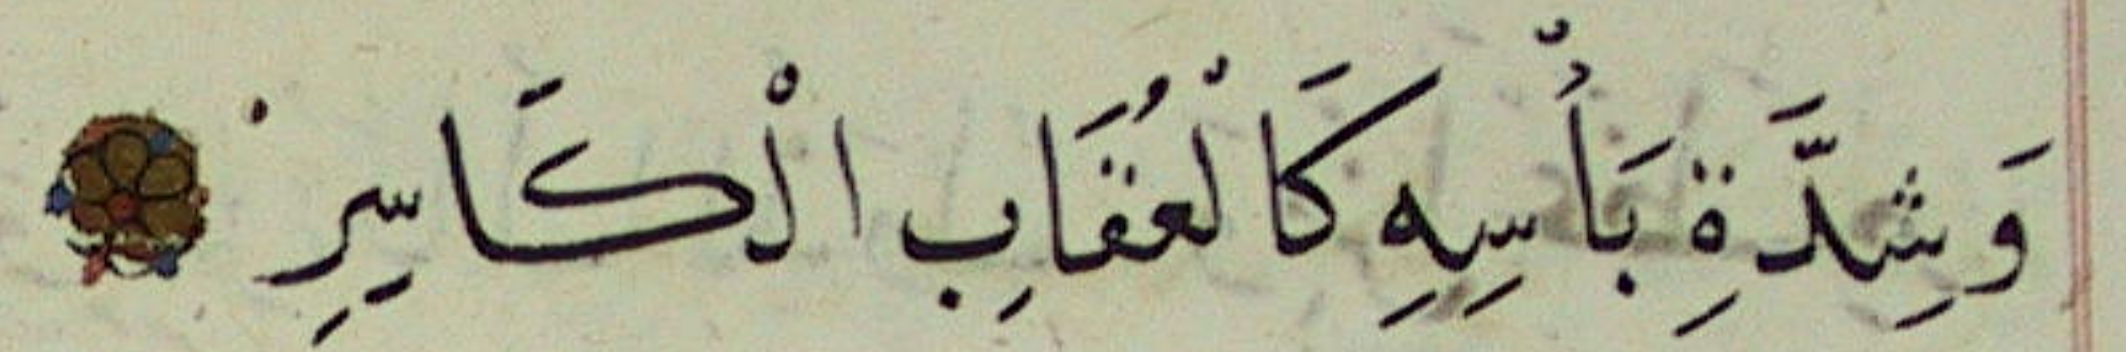 وَشِدَّةِ بَأْسِهِ كَالْعُقَابِ الْكَاسِرِ